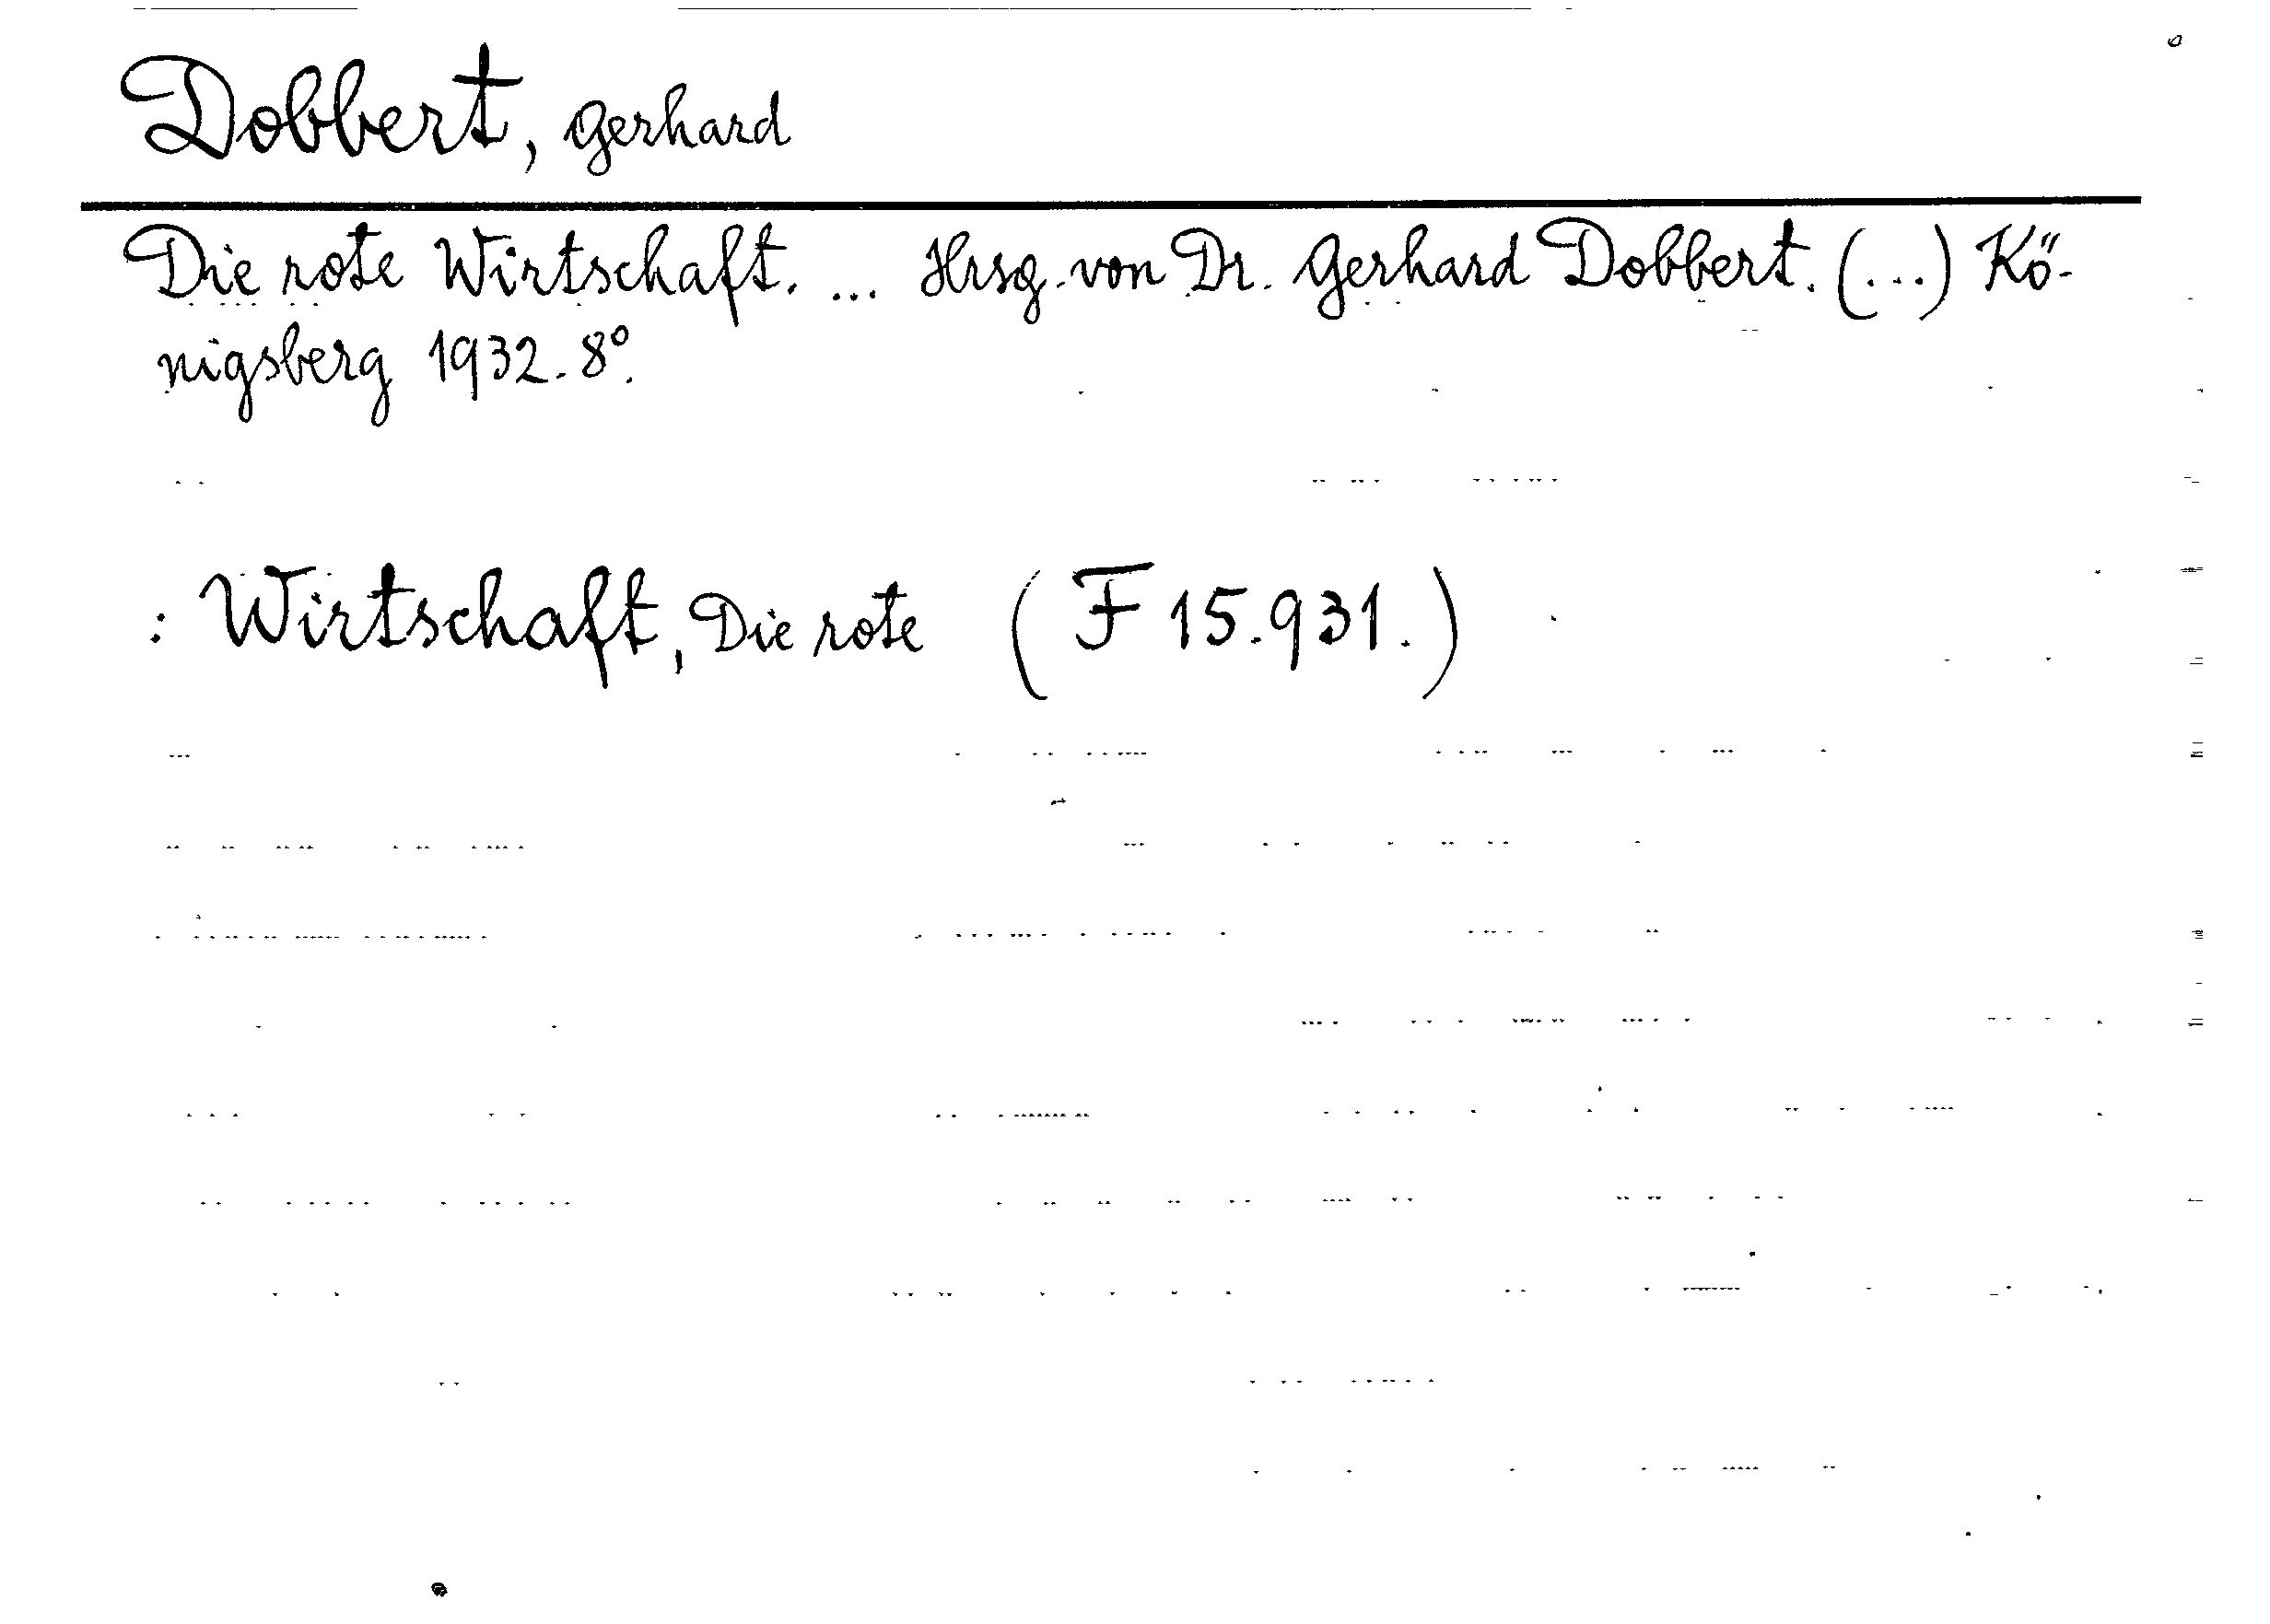 Dobbert, Gerhard
Die rote Wirtschaft. ... Hrsg. von Dr. Gerhard Dobbert. (...) Kö-
nigsberg 1932. 8°.
: Wirtschaft, Die rote (F 15.931.)